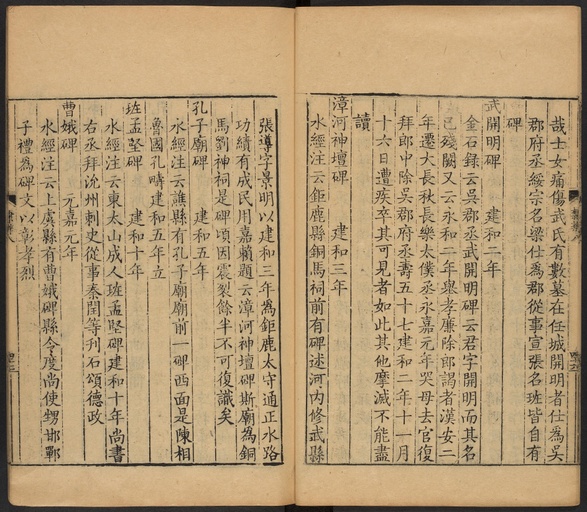 哉士女痛傷武氏有數墓在任城開明者仕為吳
郡府丞綏宗名梁仕為郡從事宣張名班皆自有
碑
武開明碑 建和二年
金石錄云吳郡丞武開明碑云君字開明而其名
已殘闕又云永和二年舉孝廉除郎謁者漢安二
年遷大長秋長樂太僕丞永嘉元年哭母去官復
拜郎中除吳郡府丞壽五十七建和二年十一月
十六日遭疾卒其可見者如此其他摩滅不能盡
讀
漳河神壇碑 建和三年
水經注云鉅鹿縣銅馬祠前有碑述河內修武縣
張導字景明以建和三年為鉅鹿太守通正水路
功績有成民用嘉賴題云漳河神壇碑斯廟為銅
馬劉神祠是碑頃因震裂餘半不可復識矣
孔子廟碑 建和五年
水經注云譙縣有孔子廟廟前一碑西面是陳相
魯國孔疇建和五年立
班孟堅碑 建和十年
水經注云東太山成人班孟堅碑建和十年尚書
右丞拜沇州刺史從事秦閏等刋石頌德政
曹娥碑 元嘉元年
水經注云上虞縣有曹娥碑縣令度尚使甥邯鄲
子禮為碑文以彰孝烈